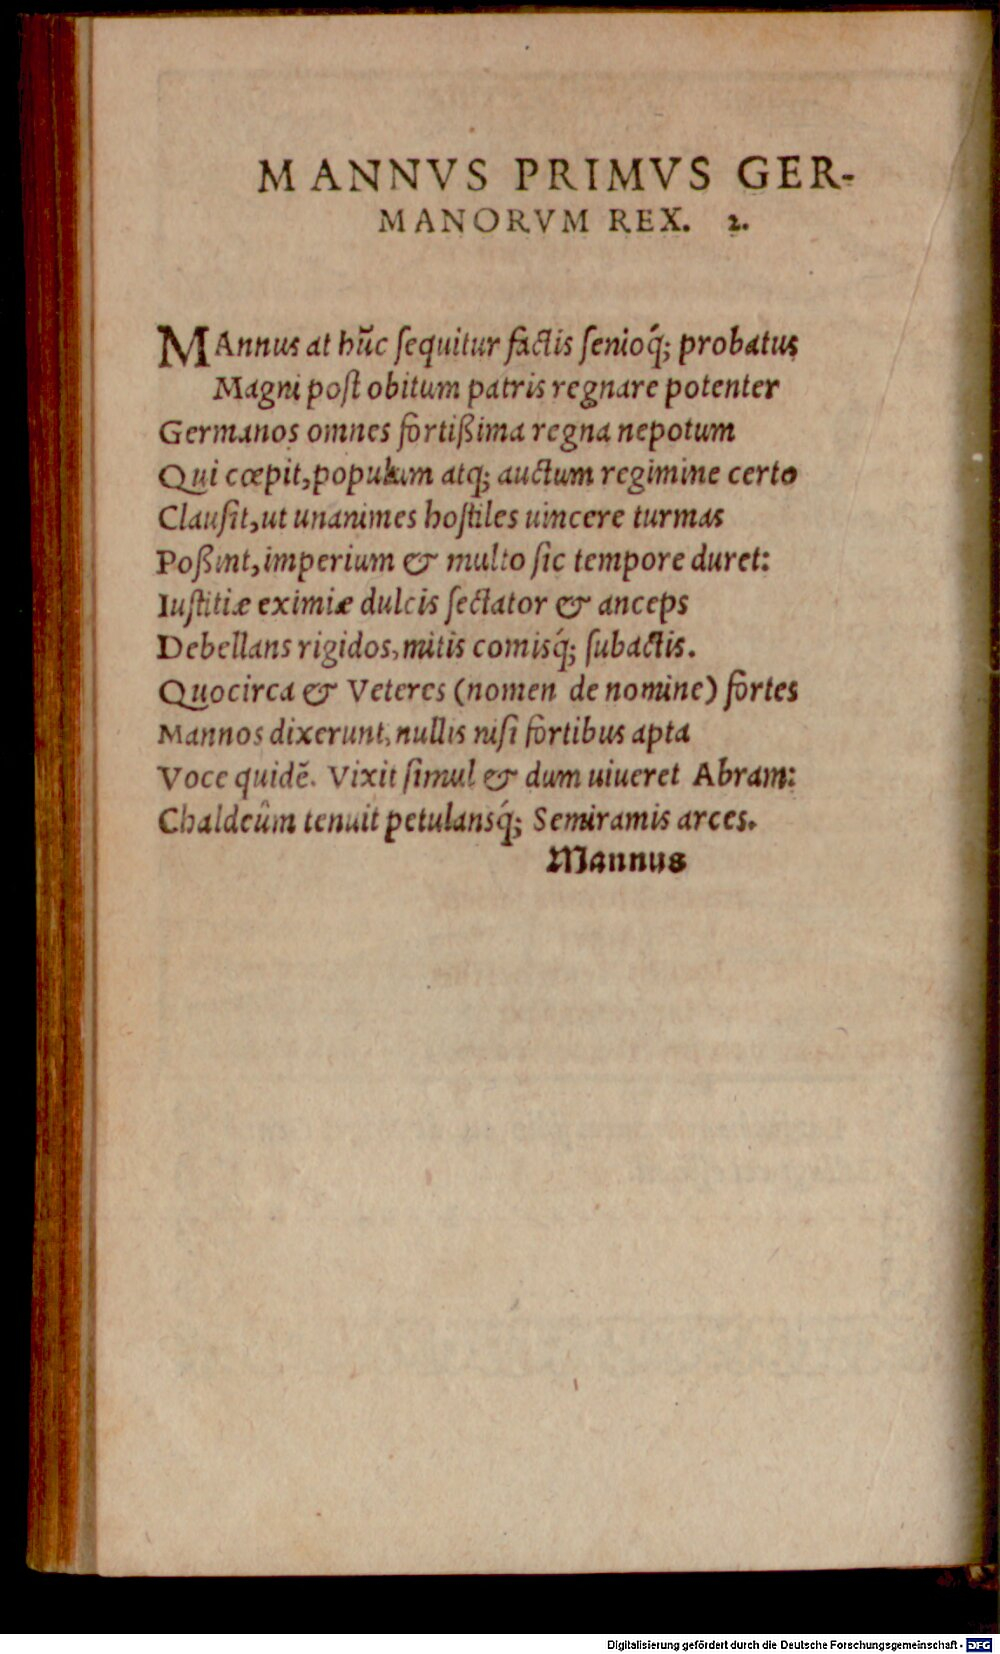 MANNVS PRIMVS GER-
MANORVM REX. 2.
MAnnus at hũc ſequitur factis ſenioq́; probatus
Magni poſt obitum patris regnare potenter
Germanos omnes fortißima regna nepotum
Qui cœpit, populum atq; auctum regimine certo
Clauſit, ut unanimes hoſtiles uincere turmas
Poßint, imperium & multo ſic tempore duret:
Iuſtitiæ eximiæ dulcis ſectator & anceps
Debellans rigidos, mitis comisq́; ſubactis.
Quocirca & Veteres (nomen de nomine) fortes
Mannos dixerunt, nullis niſi fortibus apta
Voce quidẽ. Vixit ſimul & dum uiueret Abram:
Chaldeûm tenuit petulansq́; Semiramis arces.
Mannus
Digitalisierung gefördert durch die Deutsche Forschungsgemeinschaft - DFG